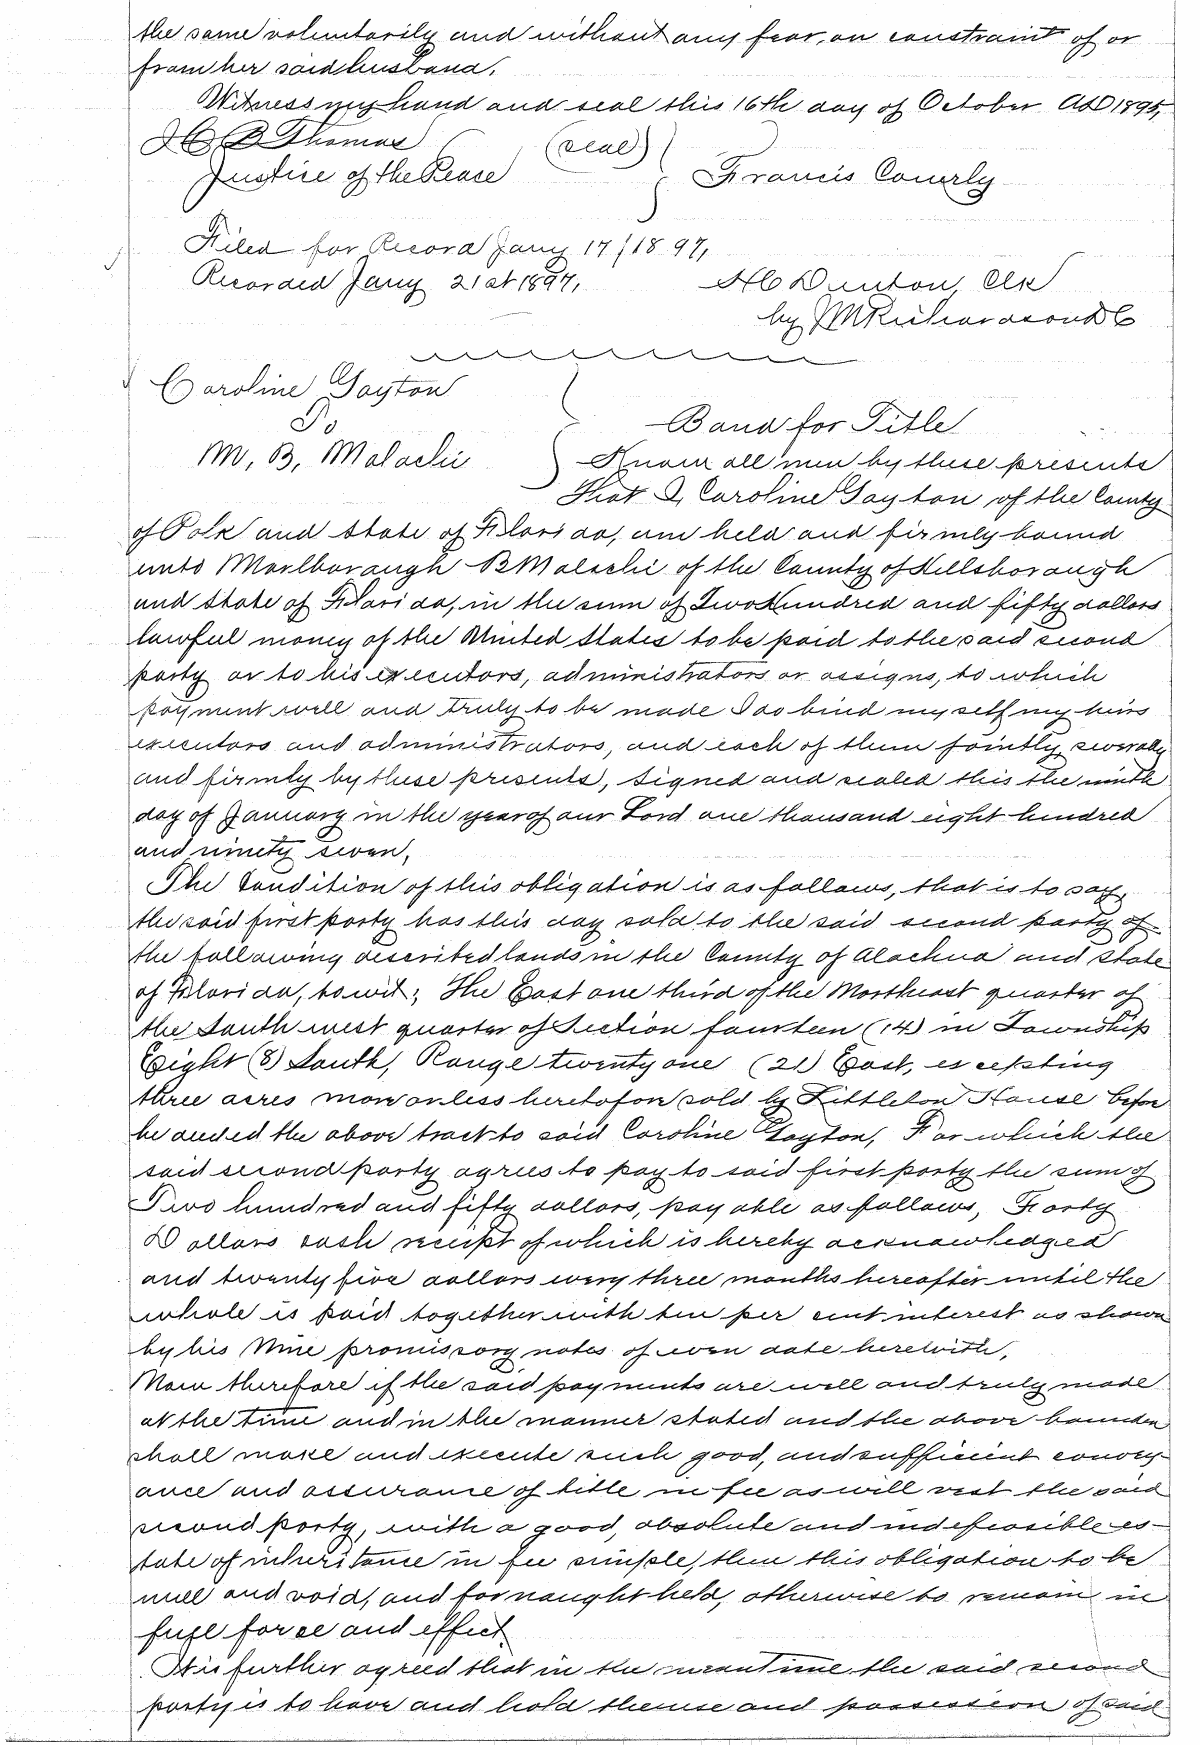 the same voluntarily and without any fear, on constraint of or
from her said husband.
Witness my hand and seal this 16th day of October AD 1895,
Thomas (seal)
Justice of the Peace Francis Conerly
Filed for Record Jany 17/1897,
Recorded Jany 21st 1897, H C Denton, Clk
by J M Richardson D C
Caroline Gayton
To Bond for Title
M, B, Malachi Know all men by these presents
That I, Caroline Gayton of the County
of Polk and State of Florida, am held and firmly bound
unto Marlborough B Malachi of the County of Hillsborough
and State of Florida, in the sum of Two Hundred and fifty dollars
lawful money of the United States to be paid to the said second
party or to his executors, administrators or assigns, to which
payment well and truly to be made I do bind myself my heirs
executors and administrators, and each of them jointly, severally
and firmly by these presents, Signed and sealed this the ninth
day of January in the year of our Lord one thousand eight hundred
and ninety seven,
The Condition of this obligation is as follows, that is to say,
the said first party has this day sold to the said second party of
the following described lands in the County of Alachua and State
of Florida, to wit; The East one third of the Northeast quarter of
the South west quarter of Section fourteen (14) in Township
Eight (8) South, Range twenty one (21) East, excepting
three acres more or less heretofore sold by Littleton House before
he deeded the above tract to said Caroline Gayton, For which the
said second party agrees to pay to said first party the sum of
Two hundred and fifty dollars, payable as follows, Forty
Dollars cash receipt of which is hereby acknowledged
and twenty five dollars every three months hereafter until the
whole is paid together with ten per cent interest as shown
by his Nine promissory notes of even date herewith,
Now therefore if the said payments are well and truly made
at the time and in the manner stated and the above bounden
shall make and execute such good, and sufficient convey-
ance and assurance of title in fee as will vest the said
second party, with a good, absolute and indefeasible es-
tate of inheritance in fee simple, then this obligation to be
null and void, and for naught held, otherwise to remain in
full force and effect.
It is further agreed that in the meantime the said second
party is to have and hold the use and possession of said